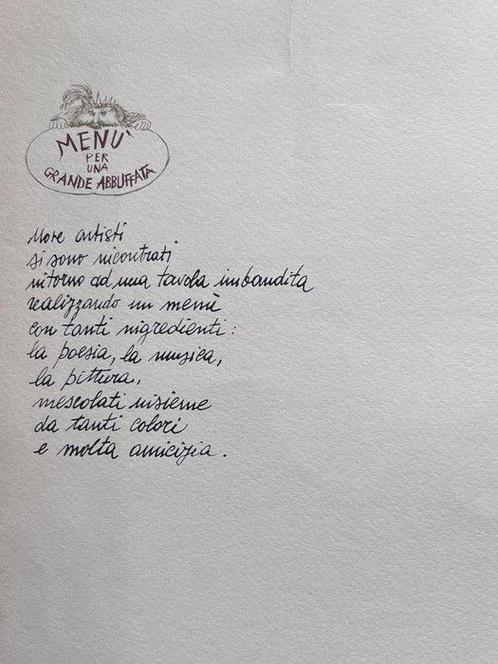 MENÙ
PER
UNA
GRANDE ABBUFFATA
Nove artisti
si sono incontrati
intorno ad una tavola imbandita
realizzando un menù
con tanti ingredienti:
la poesia, la musica,
la pittura,
mescolati insieme
da tanti colori
e molta amicizia.